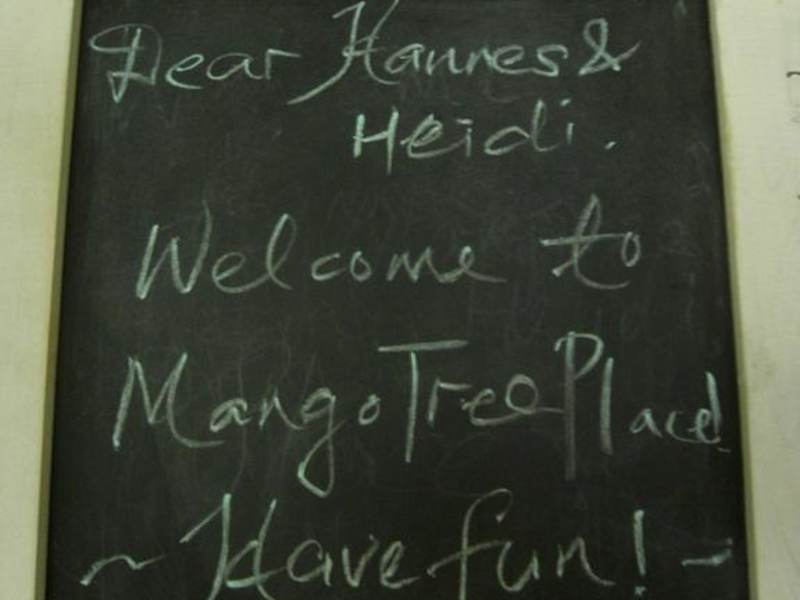 Dear Hannes &
Heidi.
Welcome to
Mango Tree Place!
~ Have fun! ~